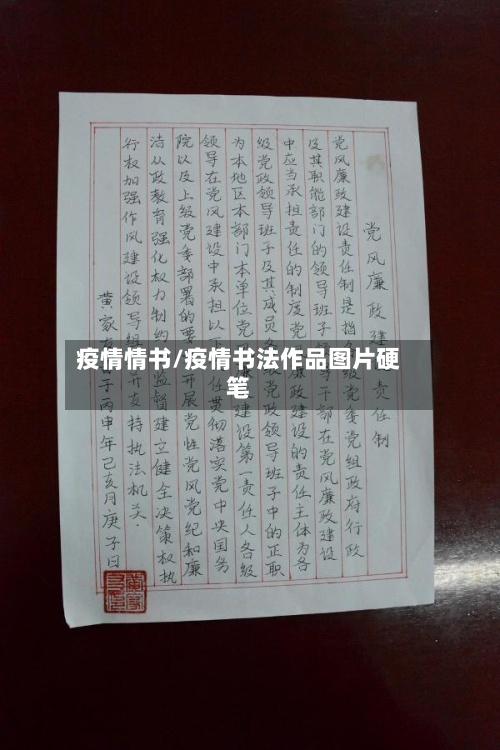 疫情情书/疫情书法作品图片硬
笔
党风廉政建责任制
党风廉政建设责任制是指级党委党组政府行政
及其职能部门的领导班子导干部在党风廉政建设
中应当承担责任的制度党廉政建设的责任主体为各
级党政领导班子及其成员级党政领导班子中的正职
为本地区本部门本单位党建设第一责任人各级
领导在党风建设中承担以下任贯彻落实党中央国务
院以及上级党委部署的要开展党性党风党纪和廉
洁从政教育强化权力制约监督建立健全决策权执
行权加强作风建设领导组并支持执法机关.
黄家于丙申年己亥月庚子日